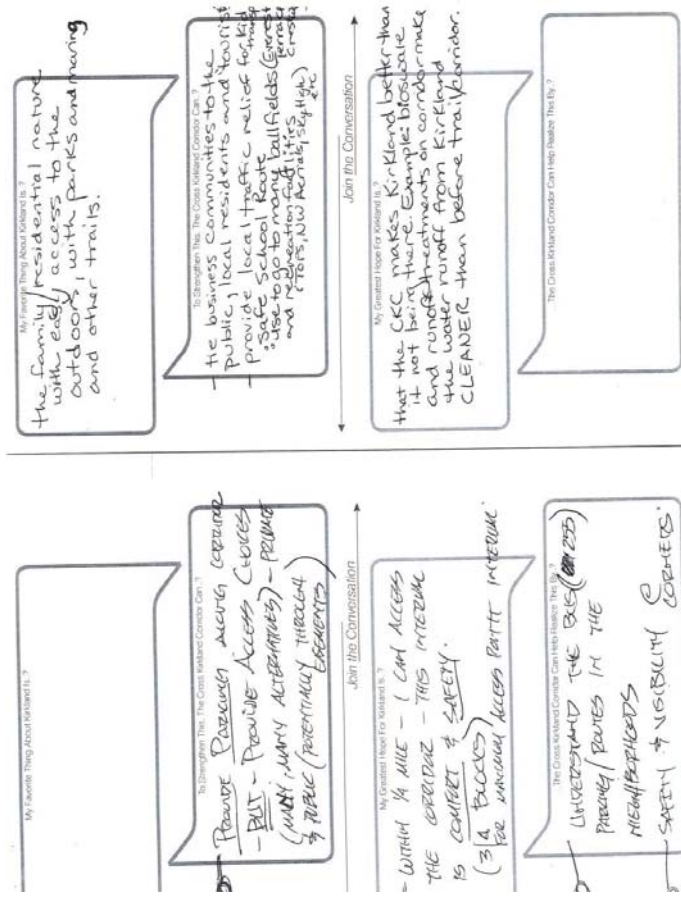 My Favorite Thing About Kirkland Is..?
To Strengthen This, The Cross Kirkland Corridor Can..?
PROVIDE PARKING ALONG CORRIDOR
- BUT - PROVIDE ACCESS CHOICES
(MANY, MANY ALTERNATIVES) - PRIVATE
& PUBLIC (POTENTIALLY THROUGH
EASEMENTS)
Join the Conversation
My Greatest Hope For Kirkland Is..?
- WITHIN 1/4 MILE - I CAN ACCESS
THE CORRIDOR - THIS INTERVAL
IS COMFORT & SAFETY.
(3/4 BLOCKS)
FOR MAXIMUM ACCESS POINT INTERVAL.
The Cross Kirkland Corridor Can Help Realize This By..?
- UNDERSTAND THE BUS (255)
PARKING/ROUTES IN THE
NEIGHBORHOODS
- SAFETY & VISIBILITY @
CORNERS.
My Favorite Thing About Kirkland Is..?
the family/residential nature
with easy access to the
outdoors, with parks and maring
and other trails.
To Strengthen This, The Cross Kirkland Corridor Can..?
- tie business communities to the
public, local residents and tourist
- provide local traffic relief for kid
transp
"Safe School Route
"use to go to many ballfields (Everest
Terrace
Crestw
and recreation facilities
(TOPS, NW Aerials, Sky High,
etc
Join the Conversation
My Greatest Hope For Kirkland Is..?
that the CKC makes Kirkland better than
it not being there. Example: bioswale
and runoff treatments on corridor make
the water runoff from Kirkland
CLEANER than before trail/corridor.
The Cross Kirkland Corridor Can Help Realize This By..?